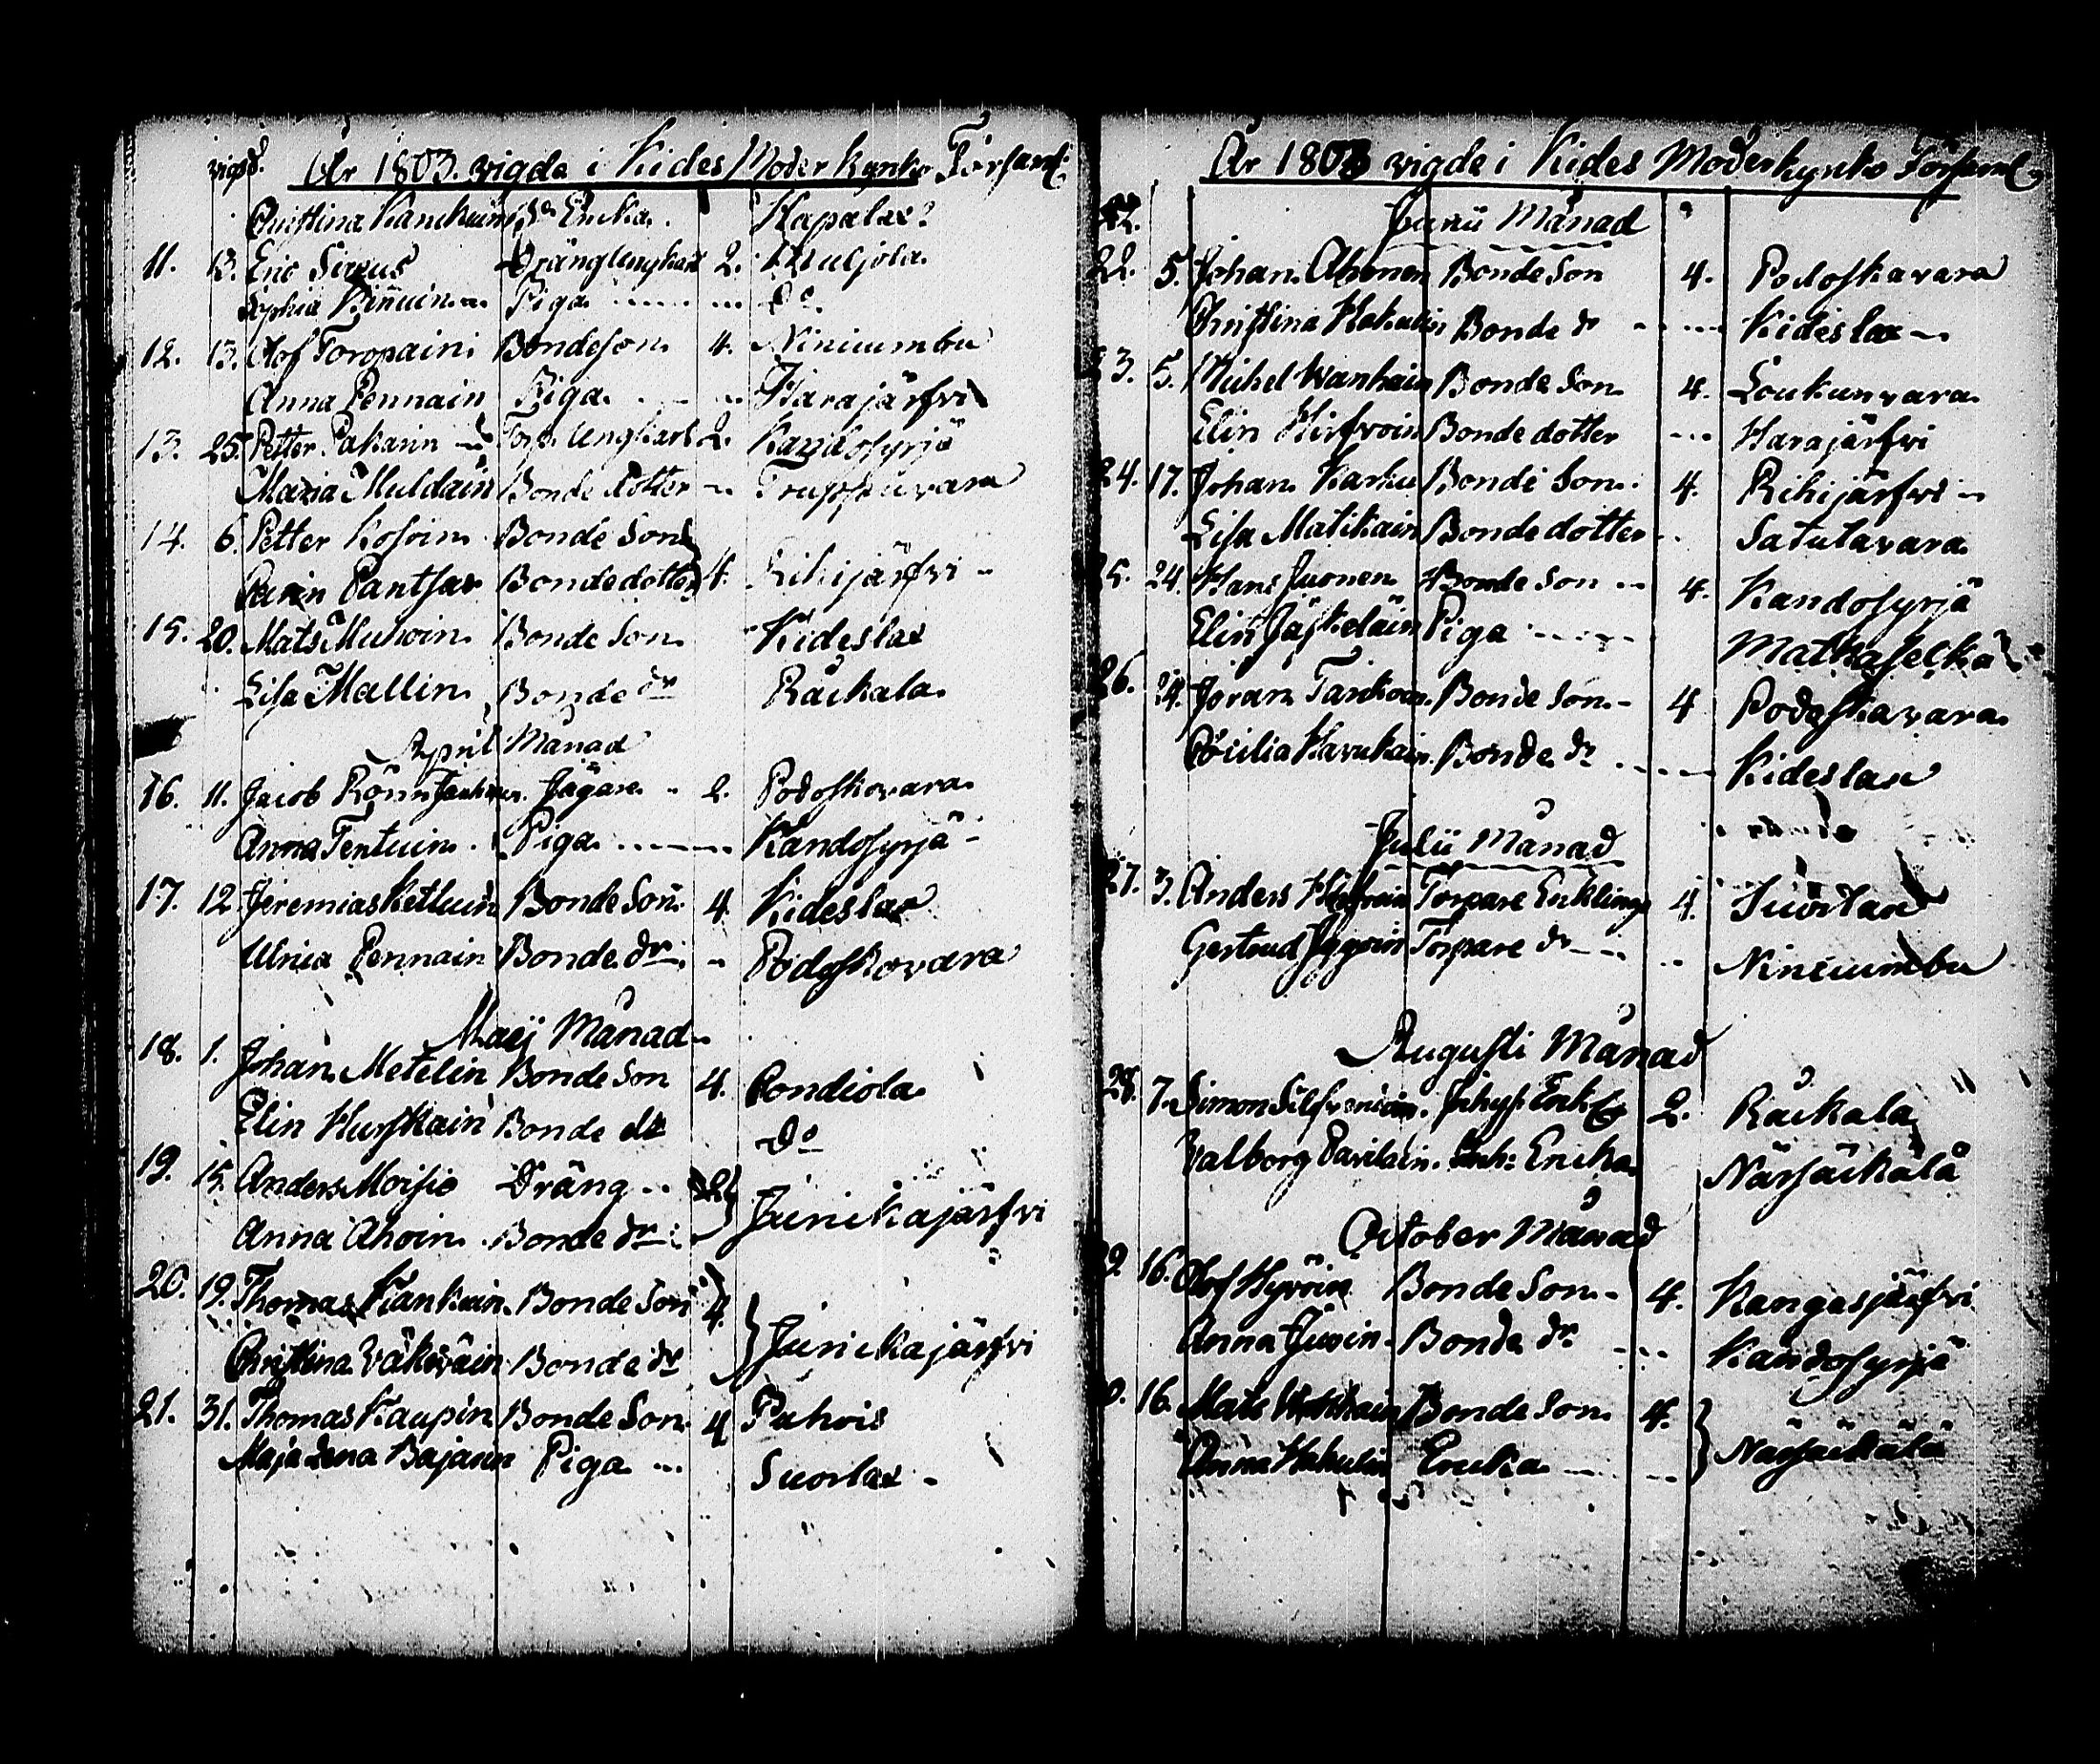 vigd. År 1803. vigda i Kides Moder kyrko Församl:
Christina Kanckuin Bd Encka. Kapalax?
11. 13. Eric Sirgus Dräng Ungkarl 2. Muljola.
Sophia Binnuin Piga do
12. 13. Olof Toropain Bondeson 4. Niniuumbu
Anna Pennain Piga. Harajärfvi
13. 25. Petter Pakarin Torp. Ungkarl 2. Kandosyrjä
Maria Muldain Bonde dotter
14. 6. Petter Kosoin Bonde Son
Carin Pantsar Bondedotter 4. Rihijärfvi
15. 20. Mats Muhoin Bonde Son Kideslax
Lisa Mallin Bonde dr Räickala.
April Månad
16. 11. Jacob Jägare 2. Podoskovara
Anna Tentuin Piga Kandosyrjä
17. 12. Jeremias Kettuin Bonde Son 4. Kideslax
Ulrica Pennain Bonde dr Podoskovara
Maij Månad
18. 1. Johan Metelin Bonde Son 4. Pondiola
Elin Hurskain Bonde dr do
19. 15. Anders Moisio Dräng 2 Junickajärfvi
Anna Ahoin Bonde dr
20. 19. Thomas Kankuin Bonde Son 4.
Christina Väkeväin Bonde dr Junickajärfvi
21. 31. Thomas Kaupin Bonde Son 4 Puhois
Maja Lena Bajarin Piga Suorlax
År 1803 vigde i Kides Moderkyrko Församl
42. Junii Månad
22. 5. Johan Ahonen Bonde Son 4. Podoskavara
Christina Hakulin Bonde dr Kideslax
23. 5. Michel Wanhain Bonde Son 4. Loukunvara
Elin Hirfvoin Bonde dotter Harajärfvi
24. 17. Johan Karhu Bonde Son 4. Rihijärfvi
Lisa Matikain Bonde dotter Satutavara
25. 24. Hans Juonen Bonde Son 4. Kandosyrjä
Elin Jäskeläin Piga Matkaselkä
26. 24. Jöran Tankoin Bonde Son 4 Podoskavara
Cicilia Havukain Bonde dr Kideslax
Julii Månad
27. 3. Anders Hirfvoin Torpare Enkling 4. Suorlax
Gertrud Torpare dr Niniuumbu
Augusti Månad
28. 7. Simon Silfvenoin. Inhys Enkl 2. Räickala
Valborg Pavilain. Inh: Encka Närsäckälä
October Månad
29. 16. Olof Hyvöin Bonde Son 4. Kangasjärfvi
Anna Juvin Bonde dr Kandosyrjä
0. 16. Mats Bonde Son 4.
Anna Hakulin Encka Närsäckälä